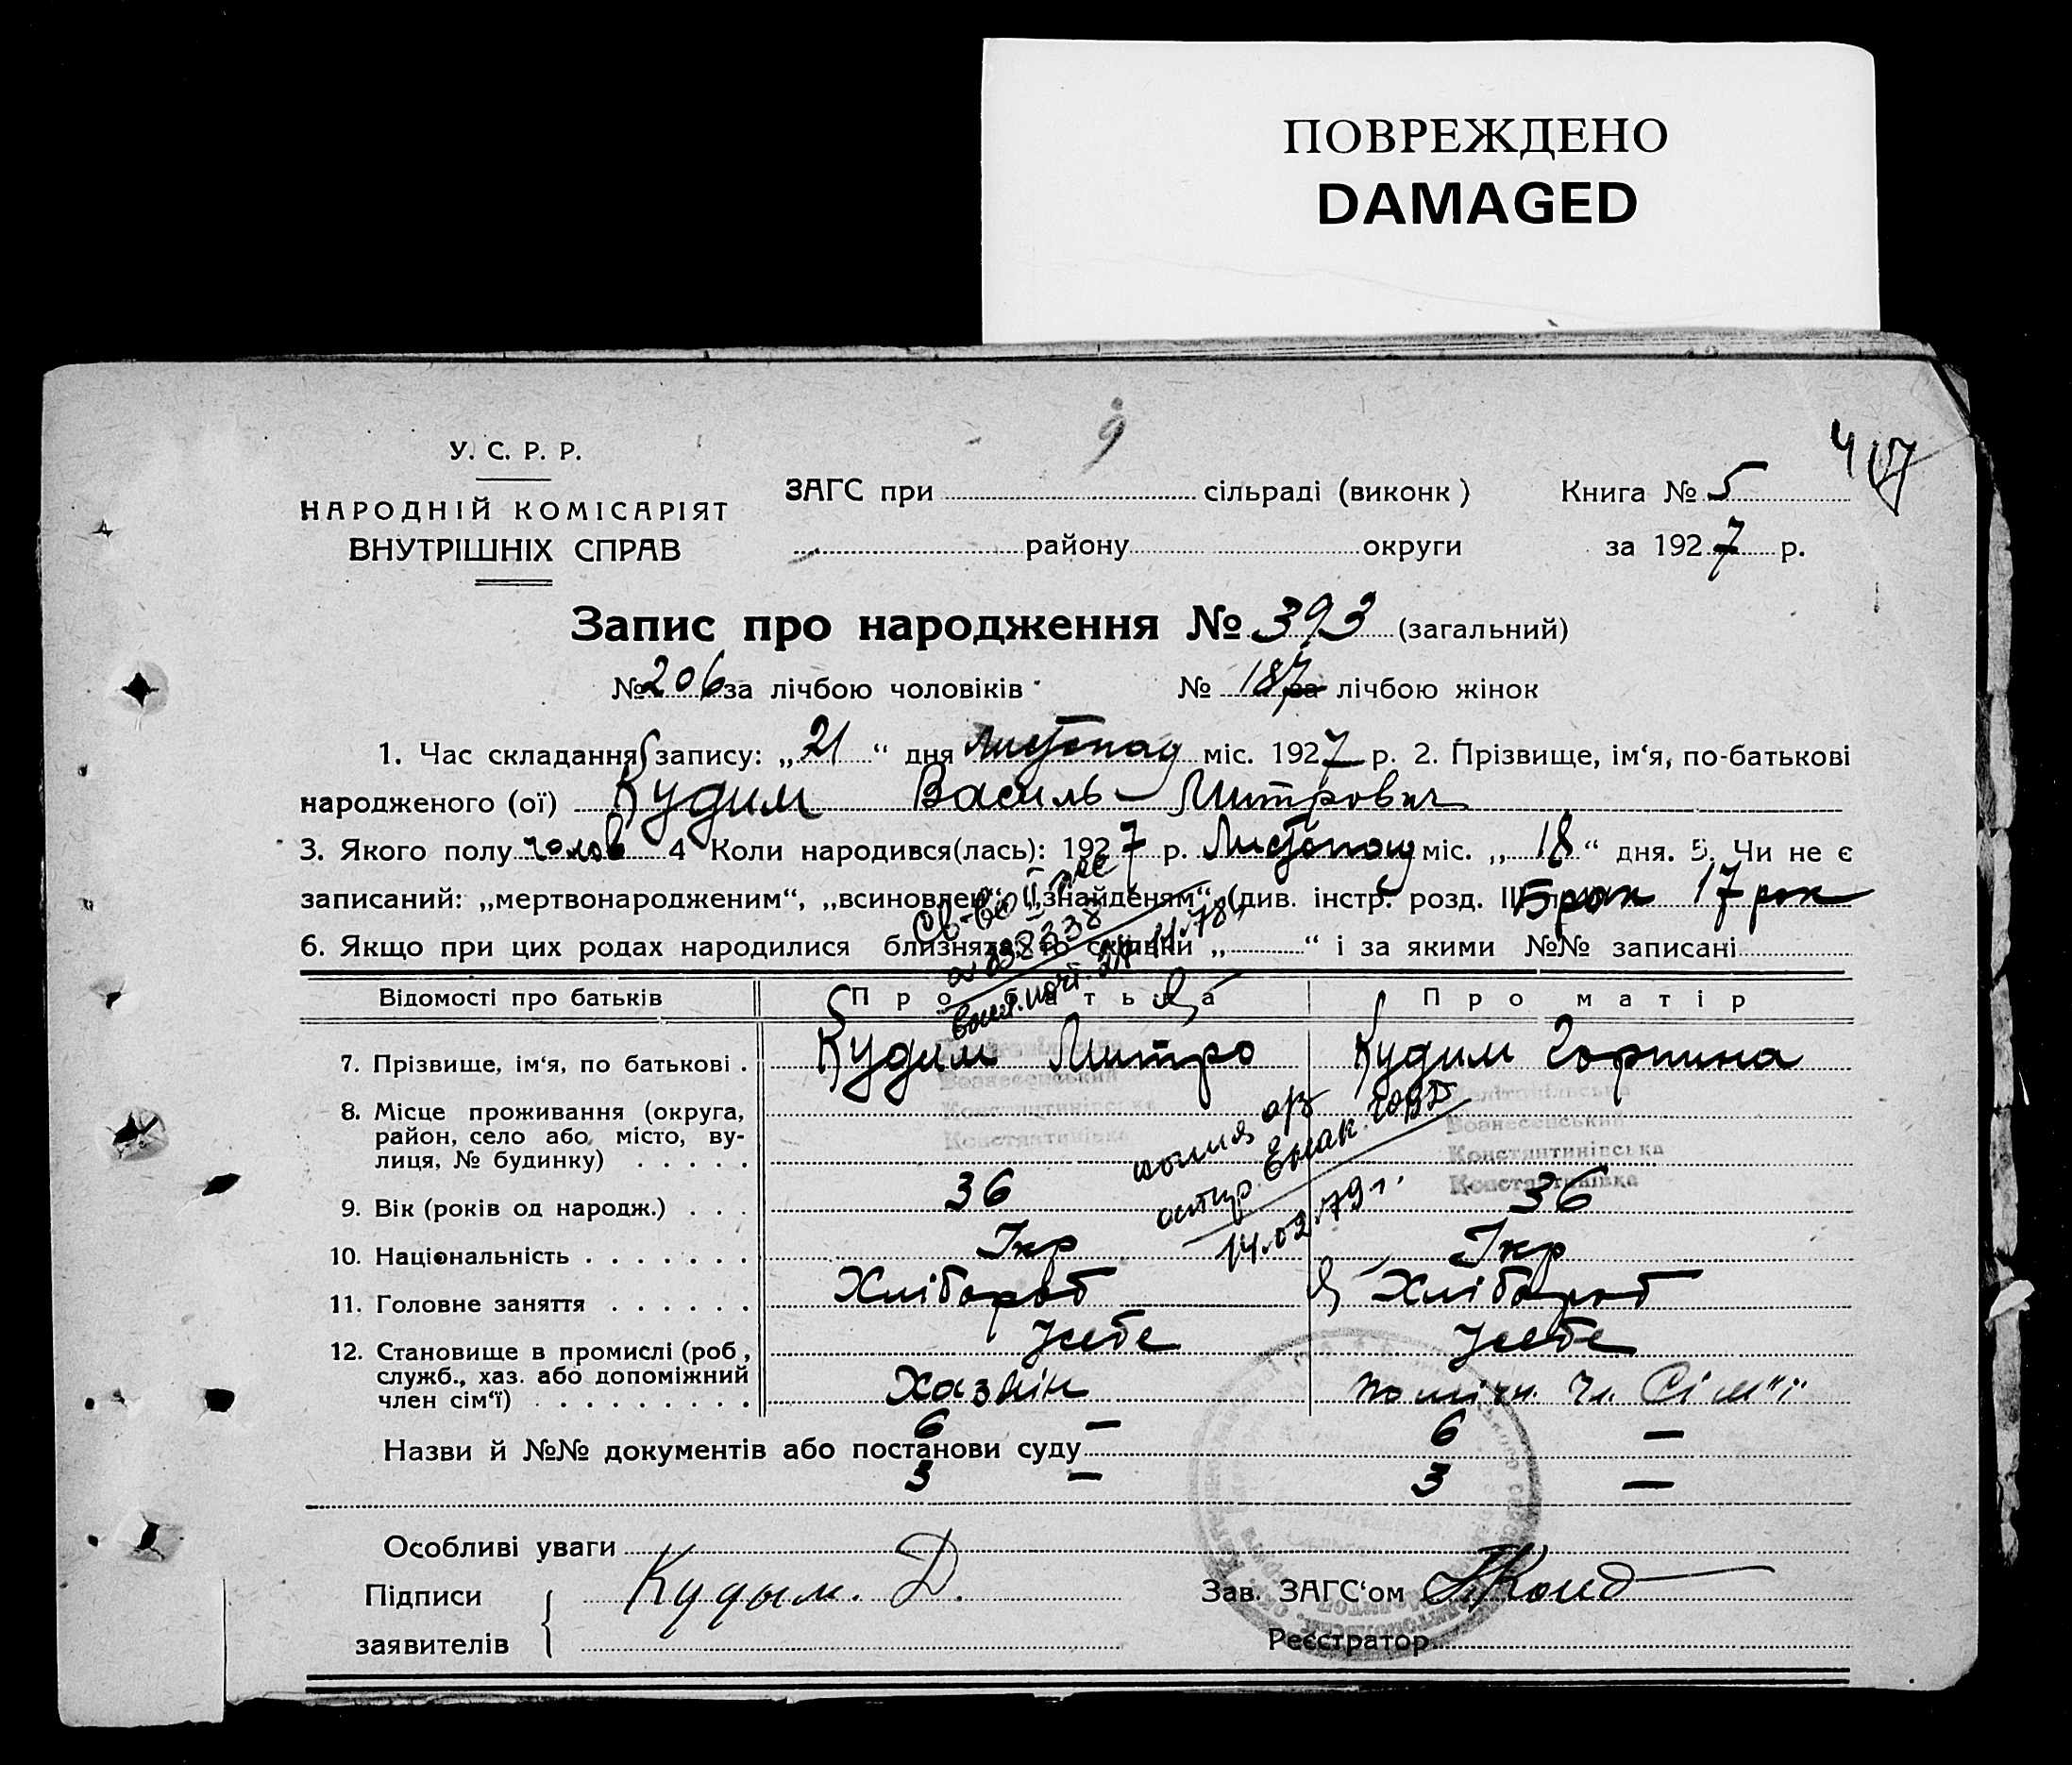 ПОВРЕЖДЕНО
DAMAGED
9
У. С. Р. Р.
НАРОДНІЙ КОМІСАРІЯТ
ВНУТРІШНІХ СПРАВ
ЗАГС при сільраді (виконк)
району округи
Книга № 5
за 1927 р.
Запис про народження № 393 (загальний)
№ 206 за лічбою чоловіків № 187 за лічбою жінок
1. Час складання запису: „21“ дня Листопад міс. 1927 р. 2. Прізвище, ім‘я, по-батькові
народженого (ої) Кудим Василь Митрович
3. Якого полу чолов 4 Коли народився(лась): 1927 р. Листопад міс. „18“ дня. 5. Чи не є
записаний: „мертвонародженим“, „всиновлен“, „знайденям“ (див. інстр. розд. III Брак 17 рок
6. Якщо при цих родах народилися близнята, то скільки „ “ і за якими №№ записані
Св-во II
Відомості про батьків Про батька Про матір
7. Прізвище, ім‘я, по батькові . Кудим Митро Кудим Горпина
8. Місце проживання (округа,
район, село або місто, ву-
лиця, № будинку)
Вознесенський
Константинівська
Константинівка
Вознесенський
Константинівська
Константинівка
копия
14.02.79 г.
9. Вік (років од народж.) 36 36
10. Національність Укр Укр
11. Головне заняття Хлібороб Хлібороб
У себе У себе
12. Становище в промислі (роб,
служб., хаз. або допоміжний
член сім‘ї) Хазяін помічн. Чл. Сім"ї
6 — 6 —
Назви й №№ документів або постанови суду
3 — 3 —
Особливі уваги
Підписи
заявителів
Кудым. Д.
Зав. ЗАГС‘ом
Реєстратор